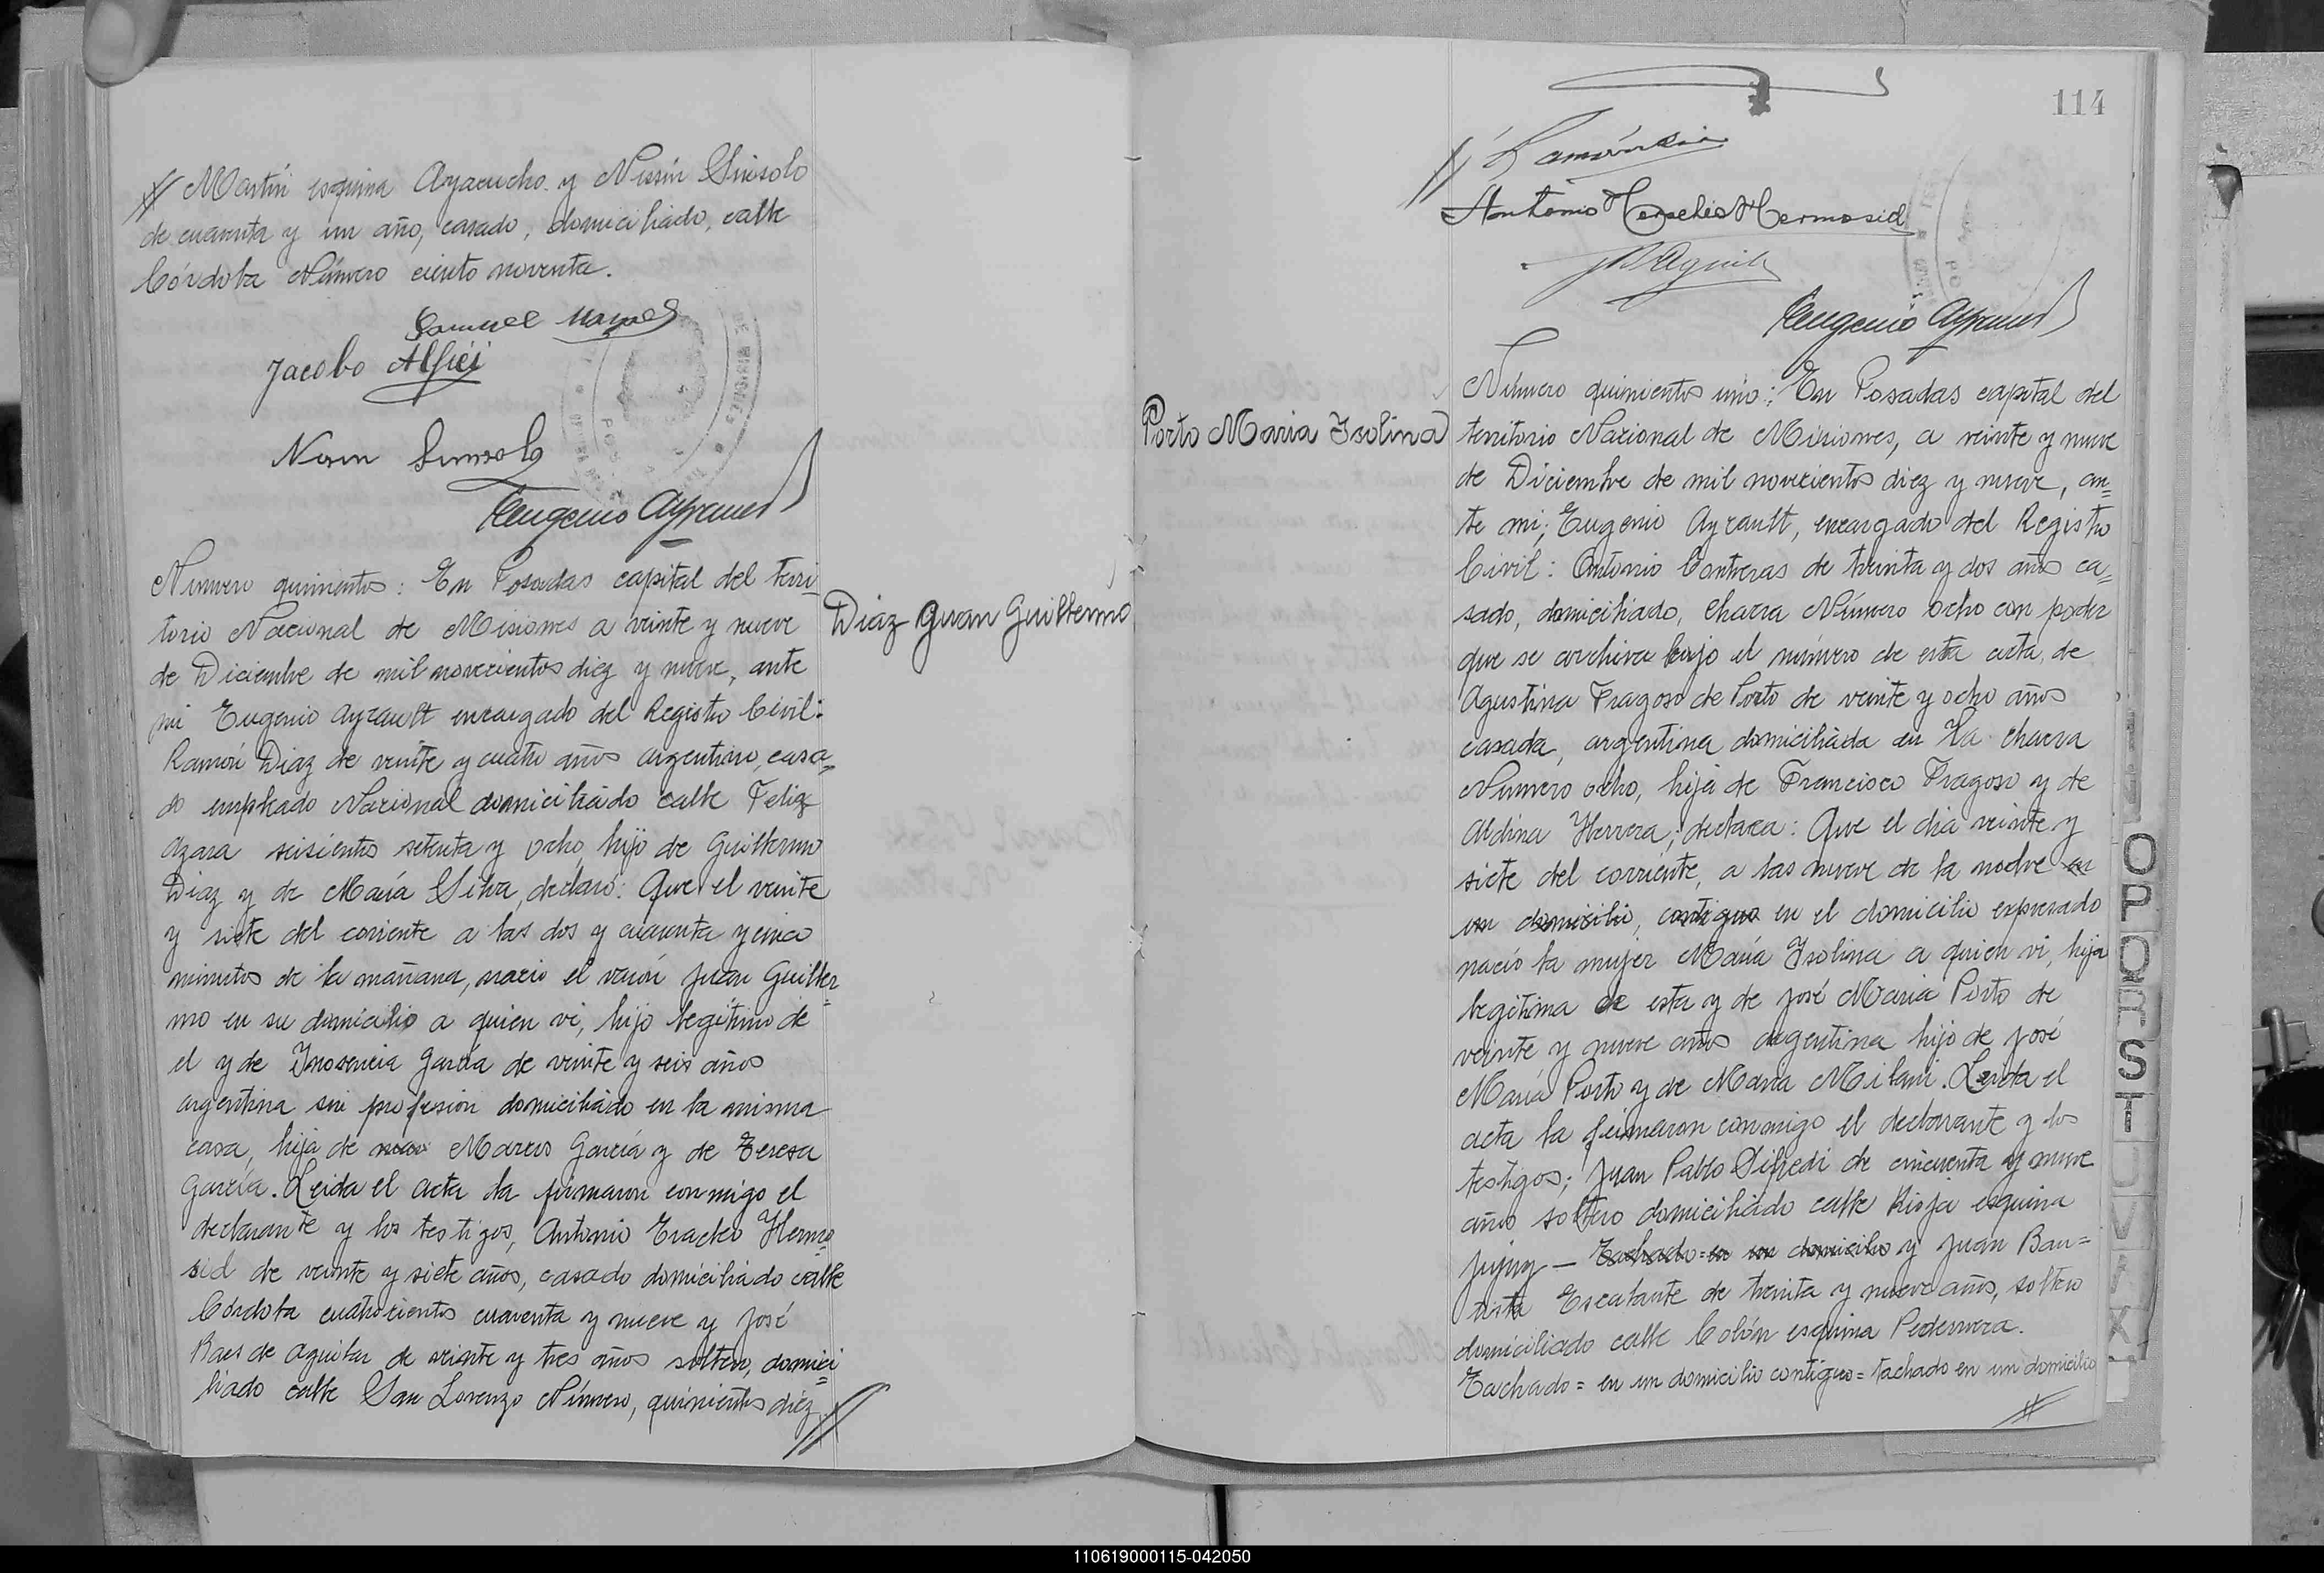 // Martín esquina Ayacucho y Nissin Sinsolo
de cuarenta y un año, casado, domiciliado, calle
Córdoba Número ciento noventa.
Samuel
Jacobo Alfici
Eugenio Ayrault
Número quinientos: En Posadas capital del terri-
torio Nacional de Misiones a veinte y nueve
de Diciembre de mil novecientos diez y nueve, ante
mi Eugenio Ayrault encargado del Registro Civil:
Ramón Diaz de veinte y cuatro años argentino, casa=
do empleado Nacional domiciliado calle Feliz
Azara seisientos setenta y ocho, hijo de Guillermo
Diaz y de María Silva, declaró: Que el veinte
y siete del corriente a las dos y cuarenta y cinco
minutos de la mañana, nacio el varón Juan Guiller=
mo en su domicilio a quien vi, hijo legítimo de
el y de Inosencia García de veinte y seis años
argentina sin profesion domiciliado en la misma
casa, hija de Marcos García y de Teresa
García. Leida el acta la firmaron conmigo el
declarante y los testigos, Antonio Eracleo Hermo=
sid de veinte y siete años, casado domiciliado calle
Córdoba cuatrocientos cuarenta y nueve y José
Baes de Aguilar de veinte y tres años soltero, domici=
liado calle San Lorenzo Número, quinientos diez //
Diaz Juan Guillermo
114
// Ramón Diaz
Antonio Heraclio Hermosid
JBAguilar
Eugenio Ayrault
Porto Maria Isolina
Número quinientos uno: En Posadas capital del
territorio Nacional de Misiones, a veinte y nueve
de Diciembre de mil novecientos diez y nueve, an=
te mi; Eugenio Ayrault, encargado del Registro
Civil: Antonio Contreras de treinta y dos años ca=
sado, domiciliado, Chacra Número ocho con poder
que se archiva bajo el número de esta acta, de
Agustina Fragoso de Porto de veinte y ocho años
casada, argentina domiciliada en La chacra
Número ocho, hija de Francisco Fragoso y de
Aldina Herrera; declara: Que el dia veinte y
siete del corriente, a las nueve de la noche en
un domicilio, contiguo en el domicilio expresado
nació la mujer María Isolina a quien vi, hija
legitima de esta y de José Maria Porto de
veinte y nueve años argentina hijo de José
María Porto y de Maria Milani. Leida el
acta la firmaron conmigo el declarante y los
testigos; Juan Pablo Sifredi de cincuenta y nueve
años soltero domiciliado calle Rioja esquina
Jujuy — Tachado= en un domicilio y Juan Bau=
tista Escalante de treinta y nueve años, soltero
domiciliado calle Colón esquina Pedernera.
Tachado = en un domicilio contiguo = tachado en un domicilio
//
O
P
Q
R
S
T
U
V
X
110619000115-042050